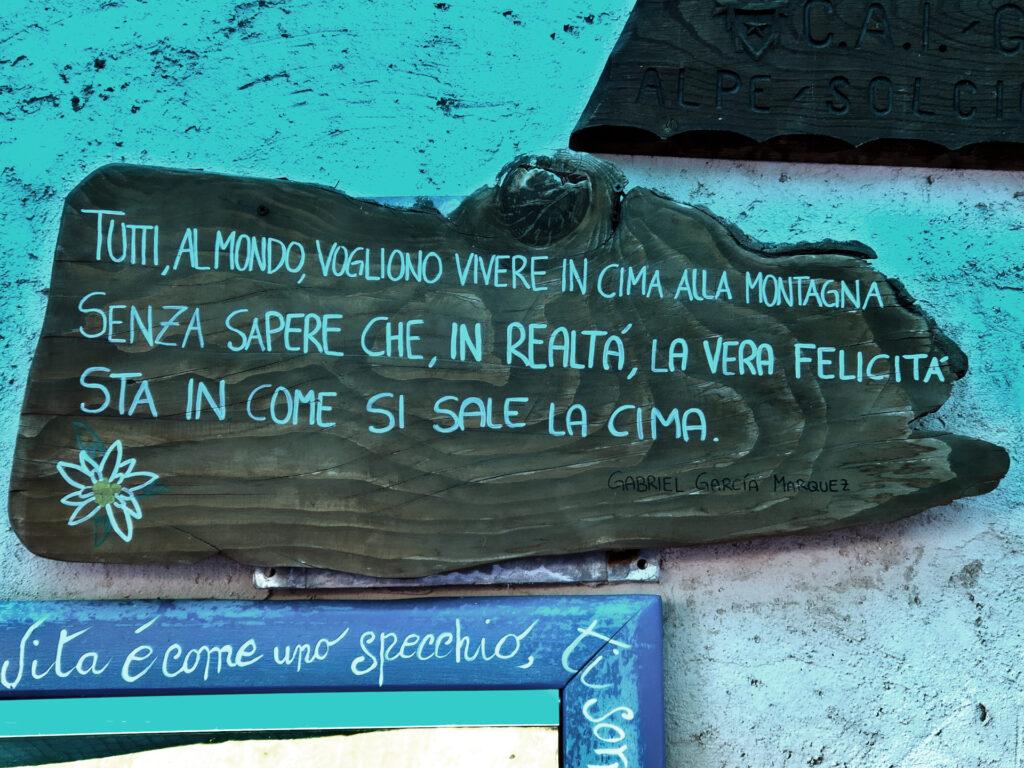 C.A.I. G
ALPE SOLCIO
TUTTI, AL MONDO, VOGLIONO VIVERE IN CIMA ALLA MONTAGNA
SENZA SAPERE CHE, IN REALTÁ, LA VERA FELICITÁ
STA IN COME SI SALE LA CIMA.
GABRIEL GARCÍA MARQUEZ
Vita é come uno specchio,
ti sorr